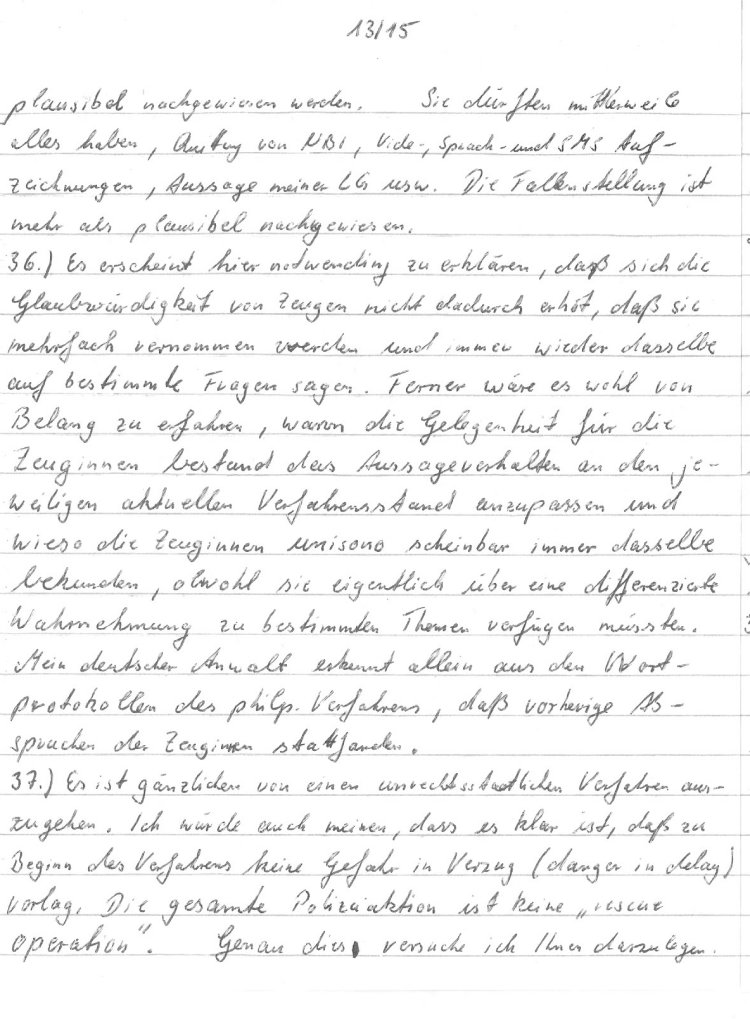 13/15
plausibel nachgewiesen werden. Sie dürften mittlerweile
alles haben, von NBI, Video-, Sprach- und SMS Auf-
zeichnungen, Aussage meiner LG usw. Die Fallenstellung ist
mehr als plausibel nachgewiesen.
36.) Es erscheint hier notwending zu erklären, daß sich die
Glaubwürdigkeit von Zeugen nicht dadurch erhöt, daß sie
mehrfach vernommen werden und immer wieder dasselbe
auf bestimmte Fragen sagen. Ferner wäre es wohl von
Belang zu erfahren, warum die Gelegenheit für die
Zeuginnen bestand das Aussageverhalten an den je-
weiligen aktuellen Verfahrensstand anzupassen und
wieso die Zeuginnen unisono scheinbar immer dasselbe
bekunden, obwohl sie eigentlich über eine differenzierte
Wahrnehmung zu bestimmten Themen verfügen müssten.
Mein deutscher Anwalt erkennt allein aus den Wort-
protokollen des philp. Verfahrens, daß vorherige Ab-
sprachen der Zeuginnen stattfanden.
37.) Es ist gänzlichen von einen unrechtsstaatlichen Verfahren aus-
zugehen. Ich würde auch meinen, dass es klar ist, daß zu
Beginn des Verfahrens keine Gefahr in Verzug (danger in delay)
vorlag. Die gesamte Polizeiaktion ist keine „rescue
operation“. Genau dies versuche ich Ihnen darzulegen.